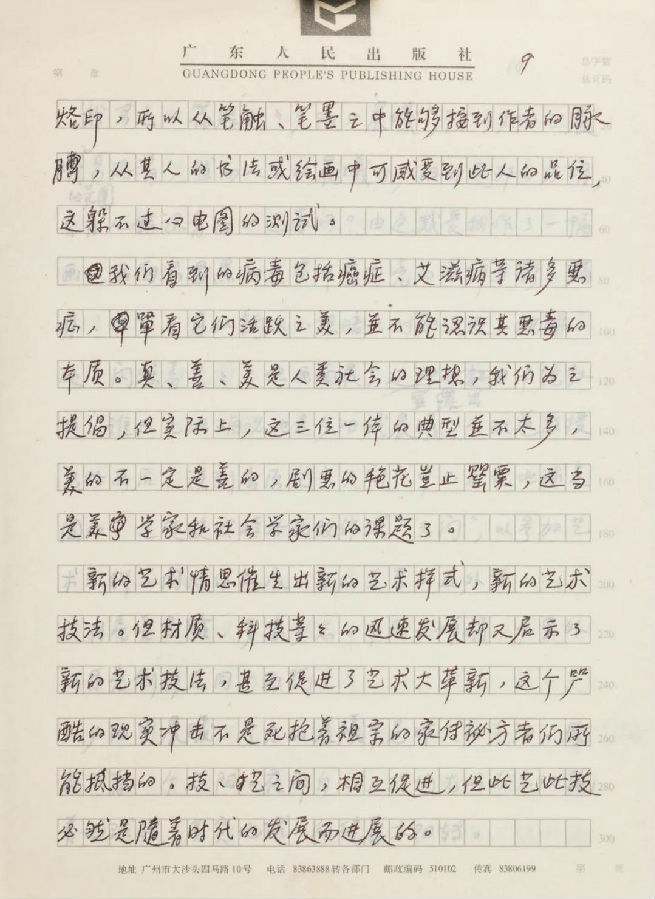 广东人民出版社
GUANGDONG PEOPLE'S PUBLISHING HOUSE
9
第 章
总字数
总页码
烙印，所以从笔触、笔墨之中能够掐到作者的脉
膊，从其人的书法或绘画中可感受到此人的品位，
这躲不过心电图的测试。
60
我们看到的病毒包括癌症、艾滋病等诸多恶
80
症，單看它们活跃之美，並不能认识其恶毒的
100
本质。真、善、美是人类社会的理想，我们为之
120
提倡，但实际上，这三位一体的典型並不太多，
140
美的不一定是善的，剧恶的艳花豈止罂粟，这当
160
是美学家和社会学家们的课题了。
180
新的艺术情思催生出新的艺术样式，新的艺术
200
技法。但材质、科技等等的迅速发展却又启示了
220
新的艺术技法，甚至促进了艺术大革新，这个严
240
酷的现实冲击不是死抱着祖宗的家传秘方者们所
260
能抵挡的。技、艺之间，相互促进，但此艺此技
280
必然是随着时代的发展而进展的。
300
地址 广州市大沙头四马路10号 电话 83863888转各部门 邮政编码 510102 传真 83806199
第 页